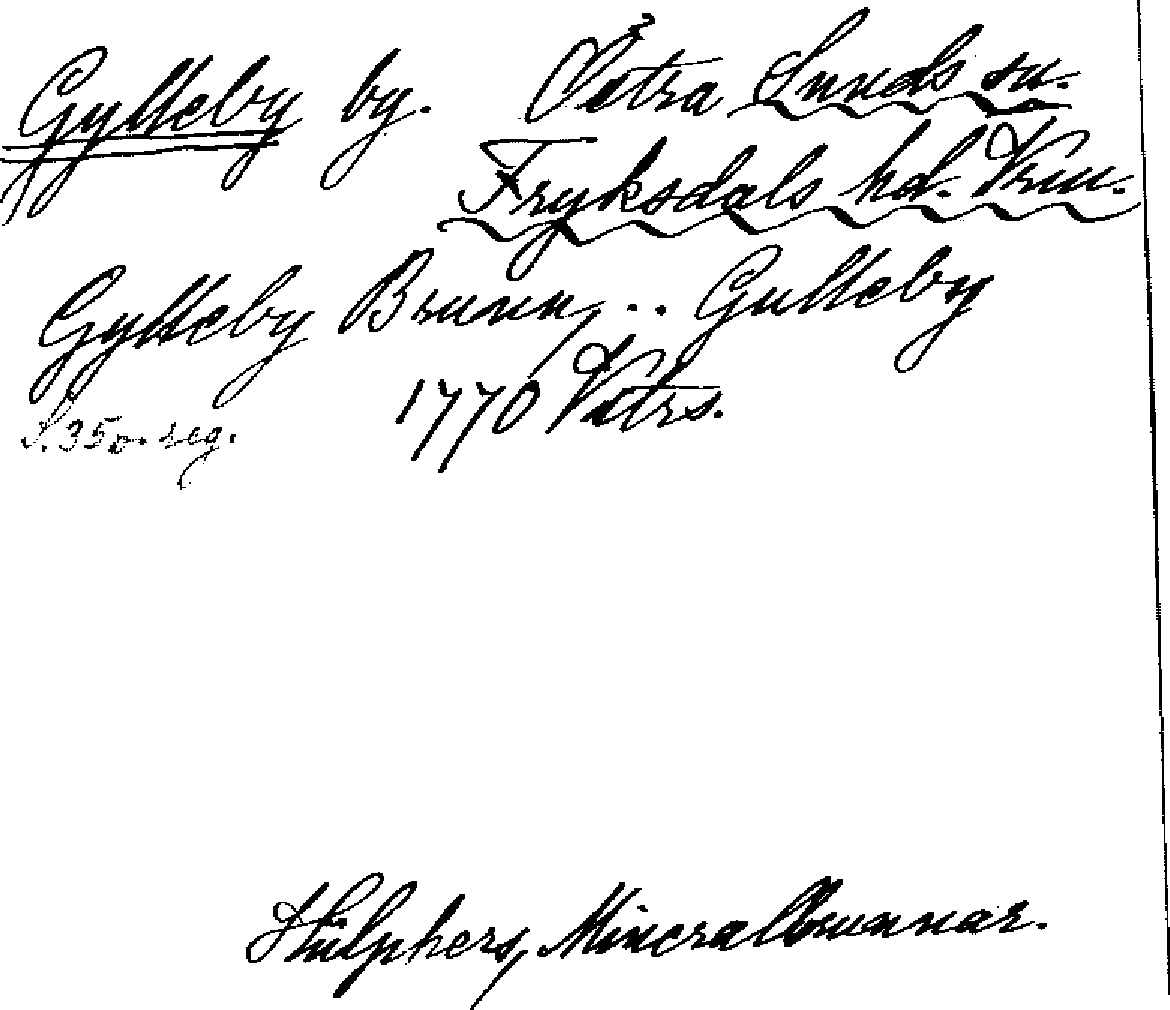 Gylleby by. Östra Sunds sn.
Fryksdals hd. Vrml.
Gylleby Brunn, .. Gulleby
1770 Vattrs.
S. 350. reg.
Hülphers, Mineralbrunnar.